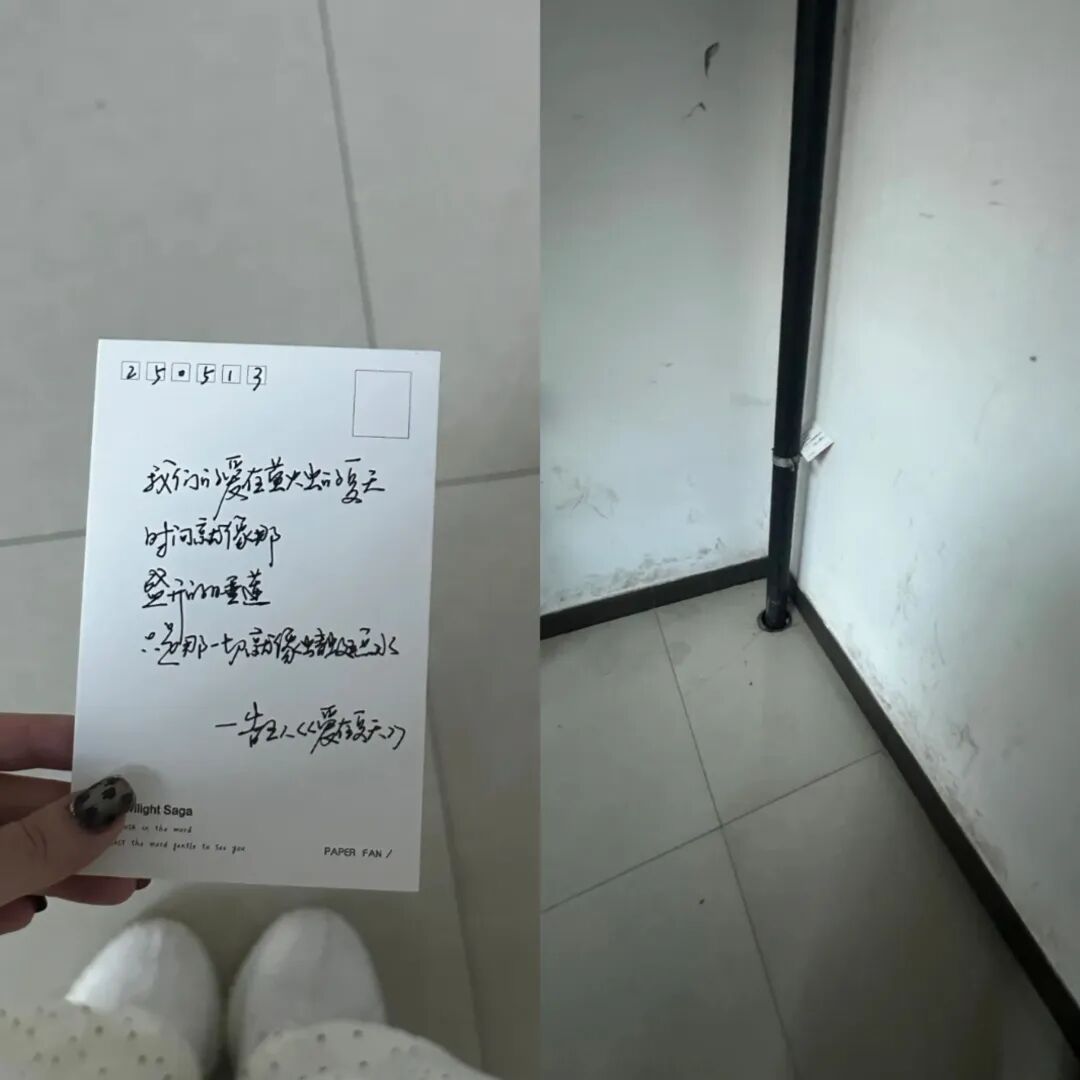 25·513
我们的爱在萤火虫的夏天
时间就像那
盛开的睡莲
只是那一切就像蜻蜓点水
—告五人《爱在夏天》
ilight Saga
in the word
the word gentle to see you
PAPER FAN /